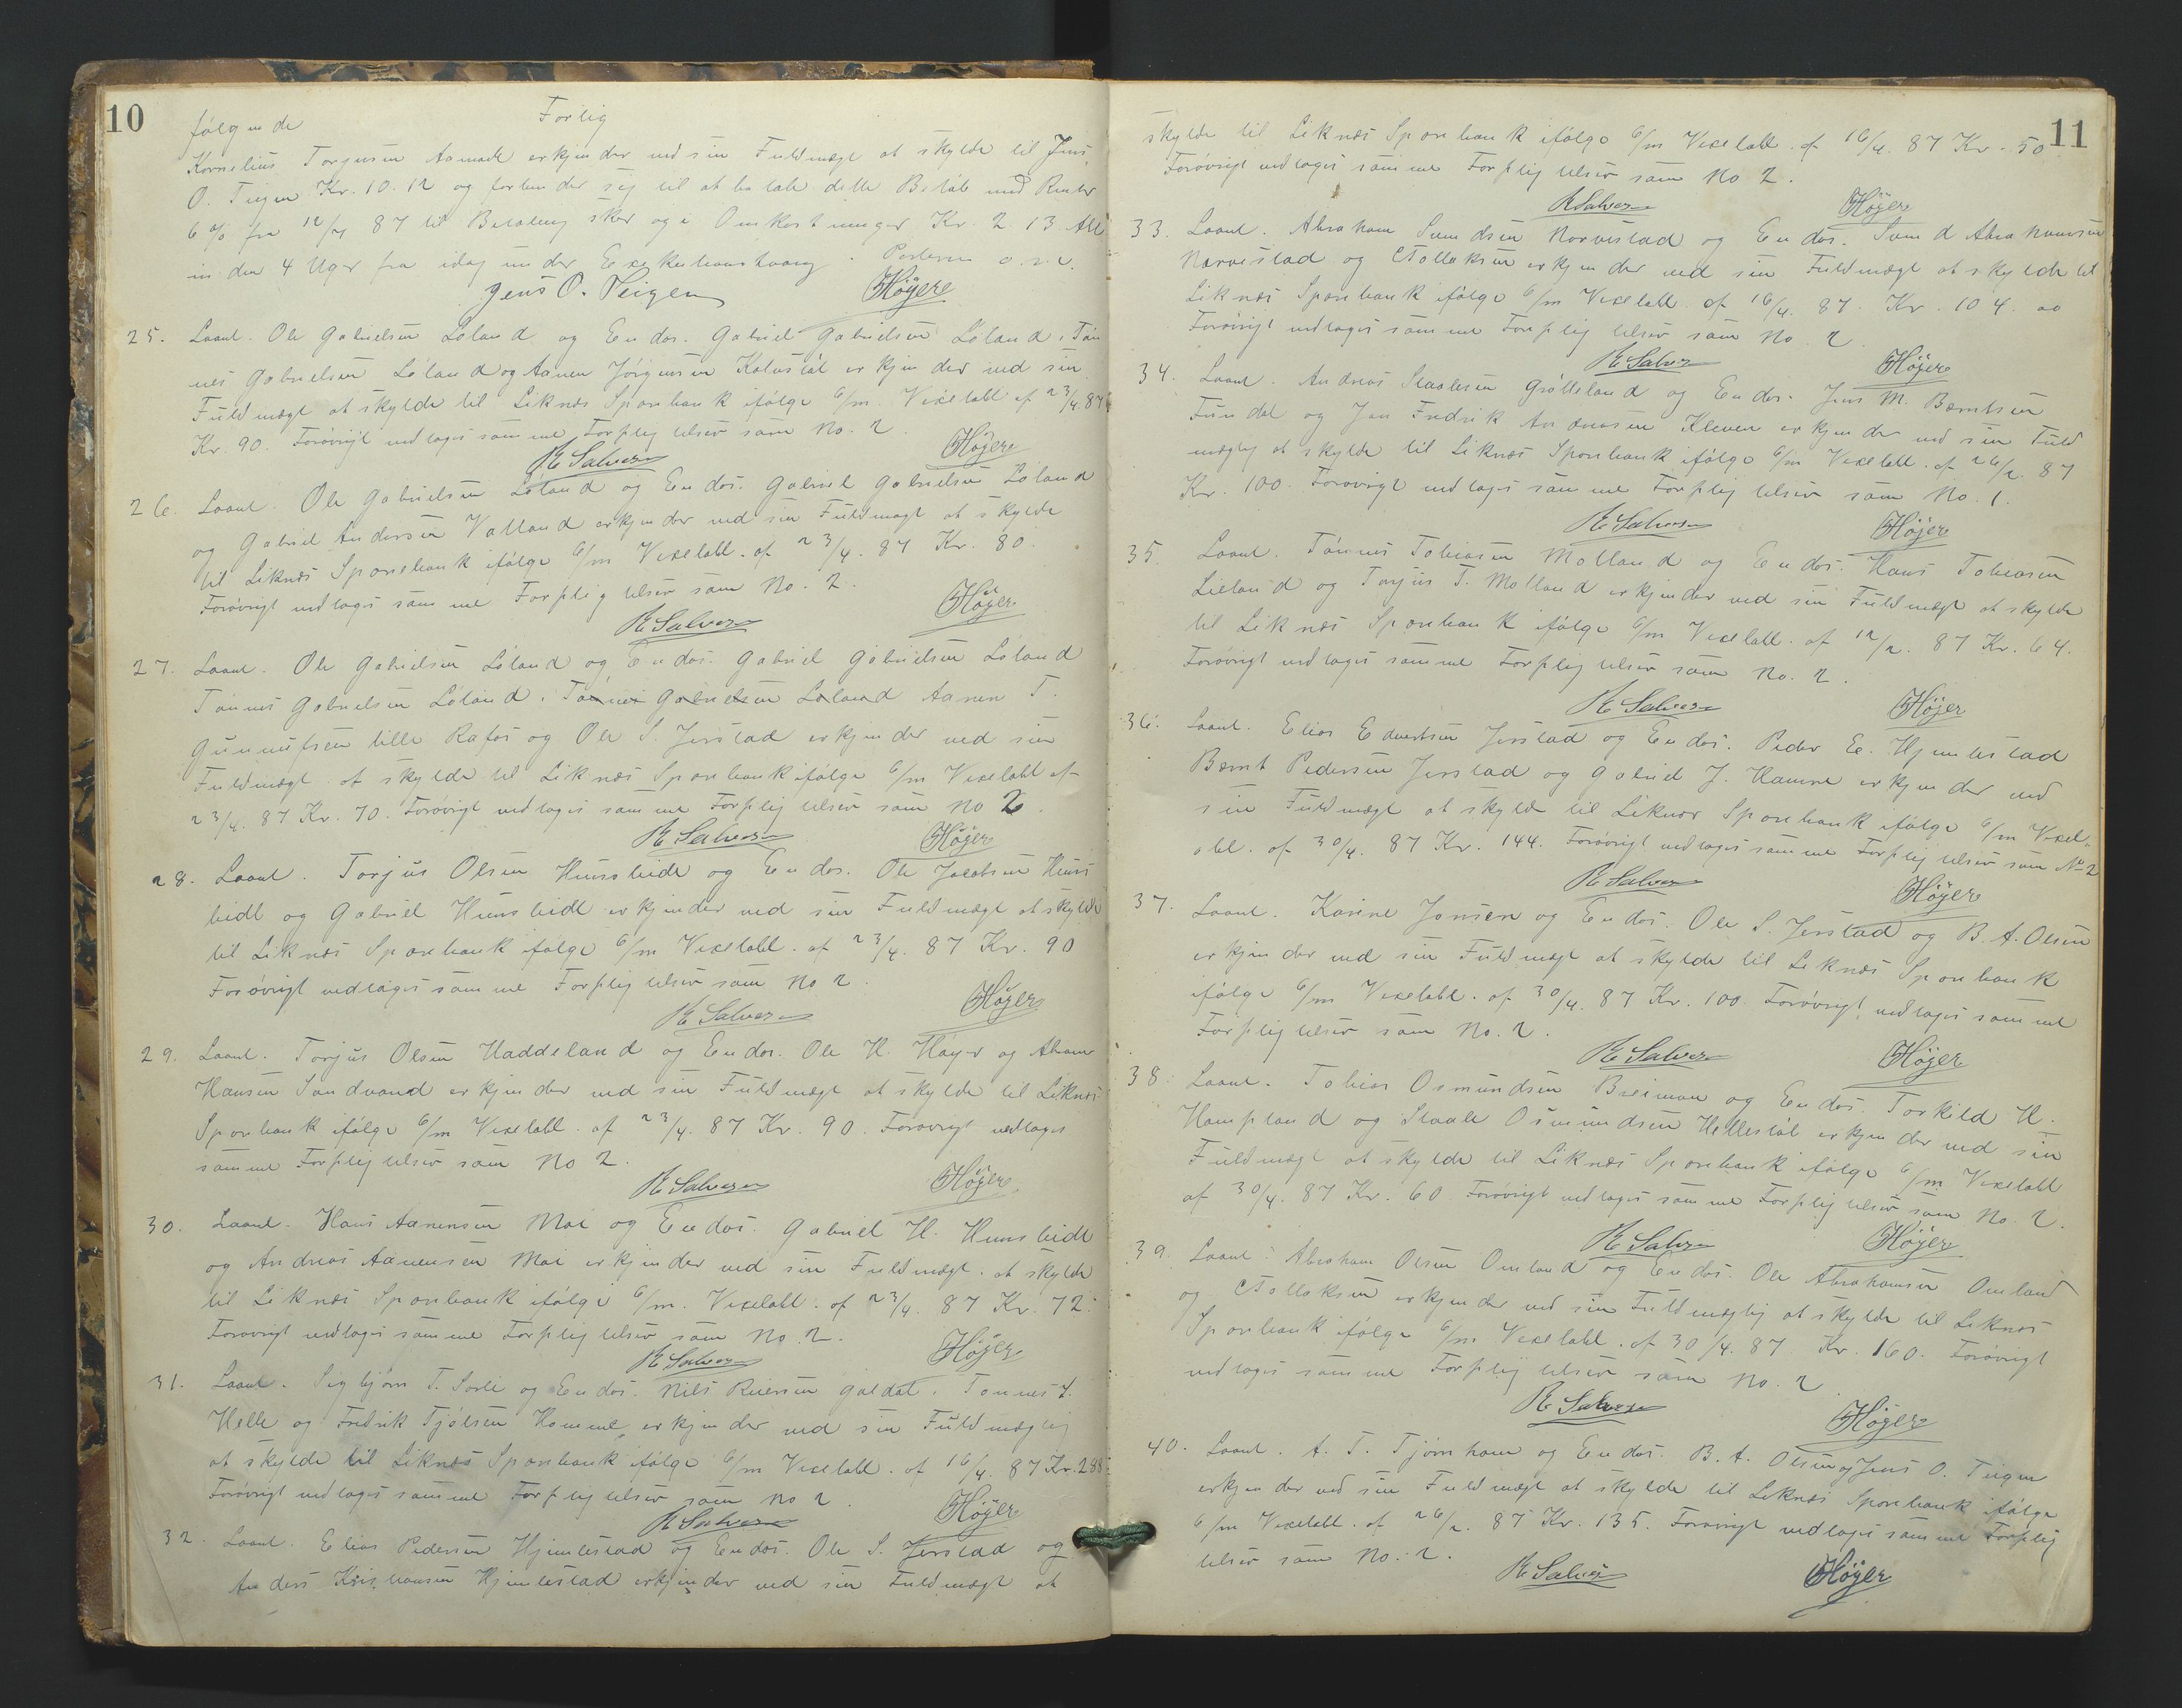 10
følgende Forlig
Kornelius Torjusen Aamodt erkjender ved sin Fuldmægt at skylde til Jens
O. Teigen Kr. 10.12 og forbinder sig til at betale dette Beløb med Renter
6 % fra 12/4 87 til Betaling sker og i Omkostninger Kr. 2.13. Alt
inden 4 Uger fra idag under Exekutionstvang.
Jens O. Teigen Højer
25. Laant. Ole Gabrielsen Løland og Endos. Gabriel Gabrielsen Løland, Tøn
nes Gabrielsen Løland og Aanen Jørgensen erkjender ved sin
Fuldmægt at skylde til Liknes Sparebank ifølge 6/m. Vexelobl. af 23/4. 87
Kr. 90. Forøvrigt vedtoges samme Forpligtelser som No. 2.
R Salvesen Højer
26. Laant. Ole Gabrielsen Løland og Endos. Gabriel Gabrielsen Løland
og Gabriel Andersen Vatland erkjender ved sin Fuldmægt at skylde
til Liknes Sparebank ifølge 6/m Vexelobl. af 23/4. 87 Kr. 80.
Forøvrigt vedtoges samme Forpligtelser som No. 2.
R Salvesen Højer
27. Laant. Ole Gabrielsen Løland og Endos. Gabriel Gabrielsen Løland
Tønnes Gabrielsen Løland. Tønnes Gabrielsen Løland Aanen T.
Gunnufsen lille Rafos og Ole S. Jerstad erkjender ved sin
Fuldmægt at skylde til Liknes Sparebank ifølge 6/m Vexelobl af
23/4. 87 Kr. 70. Forøvrigt vedtoges samme Forpligtelser som No 2.
R Salvesen Højer
28. Laant. Torjus Olsen Hunsbedt og Endos. Ole Jacobsen Huns
bedt og Gabriel Hunsbedt erkjender ved sin Fuldmægt at skylde
til Liknes Sparebank ifølge 6/m Vexelobl. af 23/4. 87 Kr. 90
Forøvrigt vedtoges samme Forpligtelser som No 2.
R Salvesen Højer
29. Laant. Torjus Olsen Haddeland og Endos. Ole H. Høyer og
Hansen Sandvand erkjender ved sin Fuldmægt at skylde til Liknes
Sparebank ifølge 6/m Vexelobl. af 23/4. 87 Kr. 90. Forøvrigt vedtoges
samme Forpligtelser som No 2.
R Salvesen Højer
30. Laant. Hans Aanensen Moi og Endos. Gabriel H. Hunsbedt
og Andreas Aanensen Moi erkjender ved sin Fuldmægt at skylde
til Liknes Sparebank ifølge 6/m. Vexelobl. af 23/4. 87 Kr. 72.
Forøvrigt vedtoges samme Forpligtelser som No. 2.
R Salvesen Højer
31. Laant. Sigbjørn T. Sorli og Endos. Nils Reiersen Galdal. Tønnes T.
Helle og Fredrik Tjølsen Homme erkjender ved sin Fuldmægtig
at skylde til Liknes Sparebank ifølge 6/m Vexelobl. af 16/4. 87 Kr. 288
Forøvrigt vedtoges samme Forpligtelser som No 2.
R Salvesen Højer
32. Laant. Elias Pedersen Hjemlestad og Endos. Ole S. Jerstad og
Anders Kristiansen Hjemlestad erkjender ved sin Fuldmægt at
11
skylde til Liknes Sparebank ifølge 6/m Vexelobl. af 16/4. 87 Kr. 50
Forøvrigt vedtoges samme Forpligtelser som No 2.
R Salvesen Højer
33. Laant. Abraham Svendsen Narvestad og Endos. Svend Abrahamsen
Narvestad og C Tollaksen erkjender ved sin Fuldmægt at skylde til
Liknes Sparebank ifølge 6/m Vexelobl. af 16/4. 87. Kr. 104.00
Forøvrigt vedtoges samme Forpligtelser som No 2.
R Salvesen Højer
34. Laant. Andreas Staalesen Grøtteland og Endos. Jens M. Berntsen
Fundal og Jens Fredrik Andreasen Kleven erkjender ved sin Fuld
mægtig at skylde til Liknes Sparebank ifølge 6/m Vexelobl. af 26/2. 87
Kr. 100. Forøvrigt vedtoges samme Forpligtelser som No. 1.
R Salvesen Højer
35. Laant. Tønnes Tobiasen Molland og Endos. Hans Tobiasen
Lieland og Torjus T. Molland erkjender ved sin Fuldmægt at skylde
til Liknes Sparebank ifølge 6/m Vexelobl. af 12/2. 87 Kr. 64.
Forøvrigt vedtoges samme Forpligtelser som No. 2.
R Salvesen Højer
36. Laant. Elias Edvartsen Jerstad og Endos. Peder E. Hjemlestad
Bernt Pedersen Jerstad og Gabriel J. Hamre erkjender ved
sin Fuldmægt at skylde til Liknes Sparebank ifølge 6/m Vexel-
obl. af 30/4. 87 Kr. 144. Forøvrigt vedtoges samme Forpligtelser som No 2
R Salvesen Højer
37. Laant. Karine Jonsen og Endos. Ole S. Jerstad og B. A. Olsen
erkjender ved sin Fuldmægt at skylde til Liknes Sparebank
ifølge 6/m Vexelobl. af 30/4. 87 Kr. 100. Forøvrigt vedtoges samme
Forpligtelser som No. 2.
R Salvesen Højer
38. Laant. Tobias Osmundsen Breimoen og Endos. Torkild H.
Hompland og Staale Osmundsen Hellestøl erkjender ved sin
Fuldmægt at skylde til Liknes Sparebank ifølge 6/m Vexelobl
af 30/4. 87 Kr. 60. Forøvrigt vedtoges samme Forpligtelser som No. 2.
R Salvesen Højer
39. Laant. Abraham Olsen Omland og Endos. Ole Abrahamsen Omland
og C Tollaksen erkjender ved sin Fuldmægtig at skylde til Liknes
Sparebank ifølge 6/m Vexelobl. af 30/4. 87. Kr. 160. Forøvrigt
vedtoges samme Forpligtelser som No. 2
R Salvesen Højer
40. Laant. A. T. Tjørnhom og Endos. B. A. Olsen og Jens O. Teigen
erkjender ved sin Fuldmægt at skylde til Liknes Sparebank ifølge
6/m Vexelobl. af 26/2. 87 Kr. 135. Forøvrigt vedtoges samme Forplig
telser som No. 2.
R Salvesen Højer